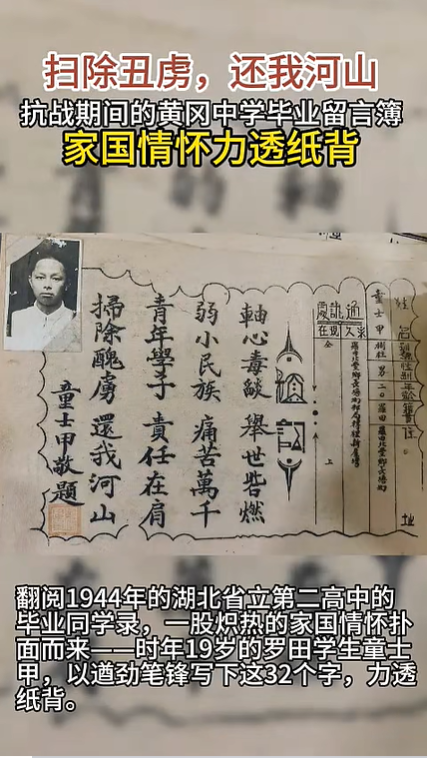 扫除丑虏，还我河山
抗战期间的黄冈中学毕业留言簿
家国情怀力透纸背
童士甲
男
二〇
羅田
通訊處
永久
現在
仝上
軸心毒燄 舉世皆燃
弱小民族 痛苦萬千
青年學子 責任在肩
掃除醜虜 還我河山
童士甲敬題
翻阅1944年的湖北省立第二高中的
毕业同学录，一股炽热的家国情怀扑
面而来——时年19岁的罗田学生童士
甲，以遒劲笔锋写下这32个字，力透
纸背。